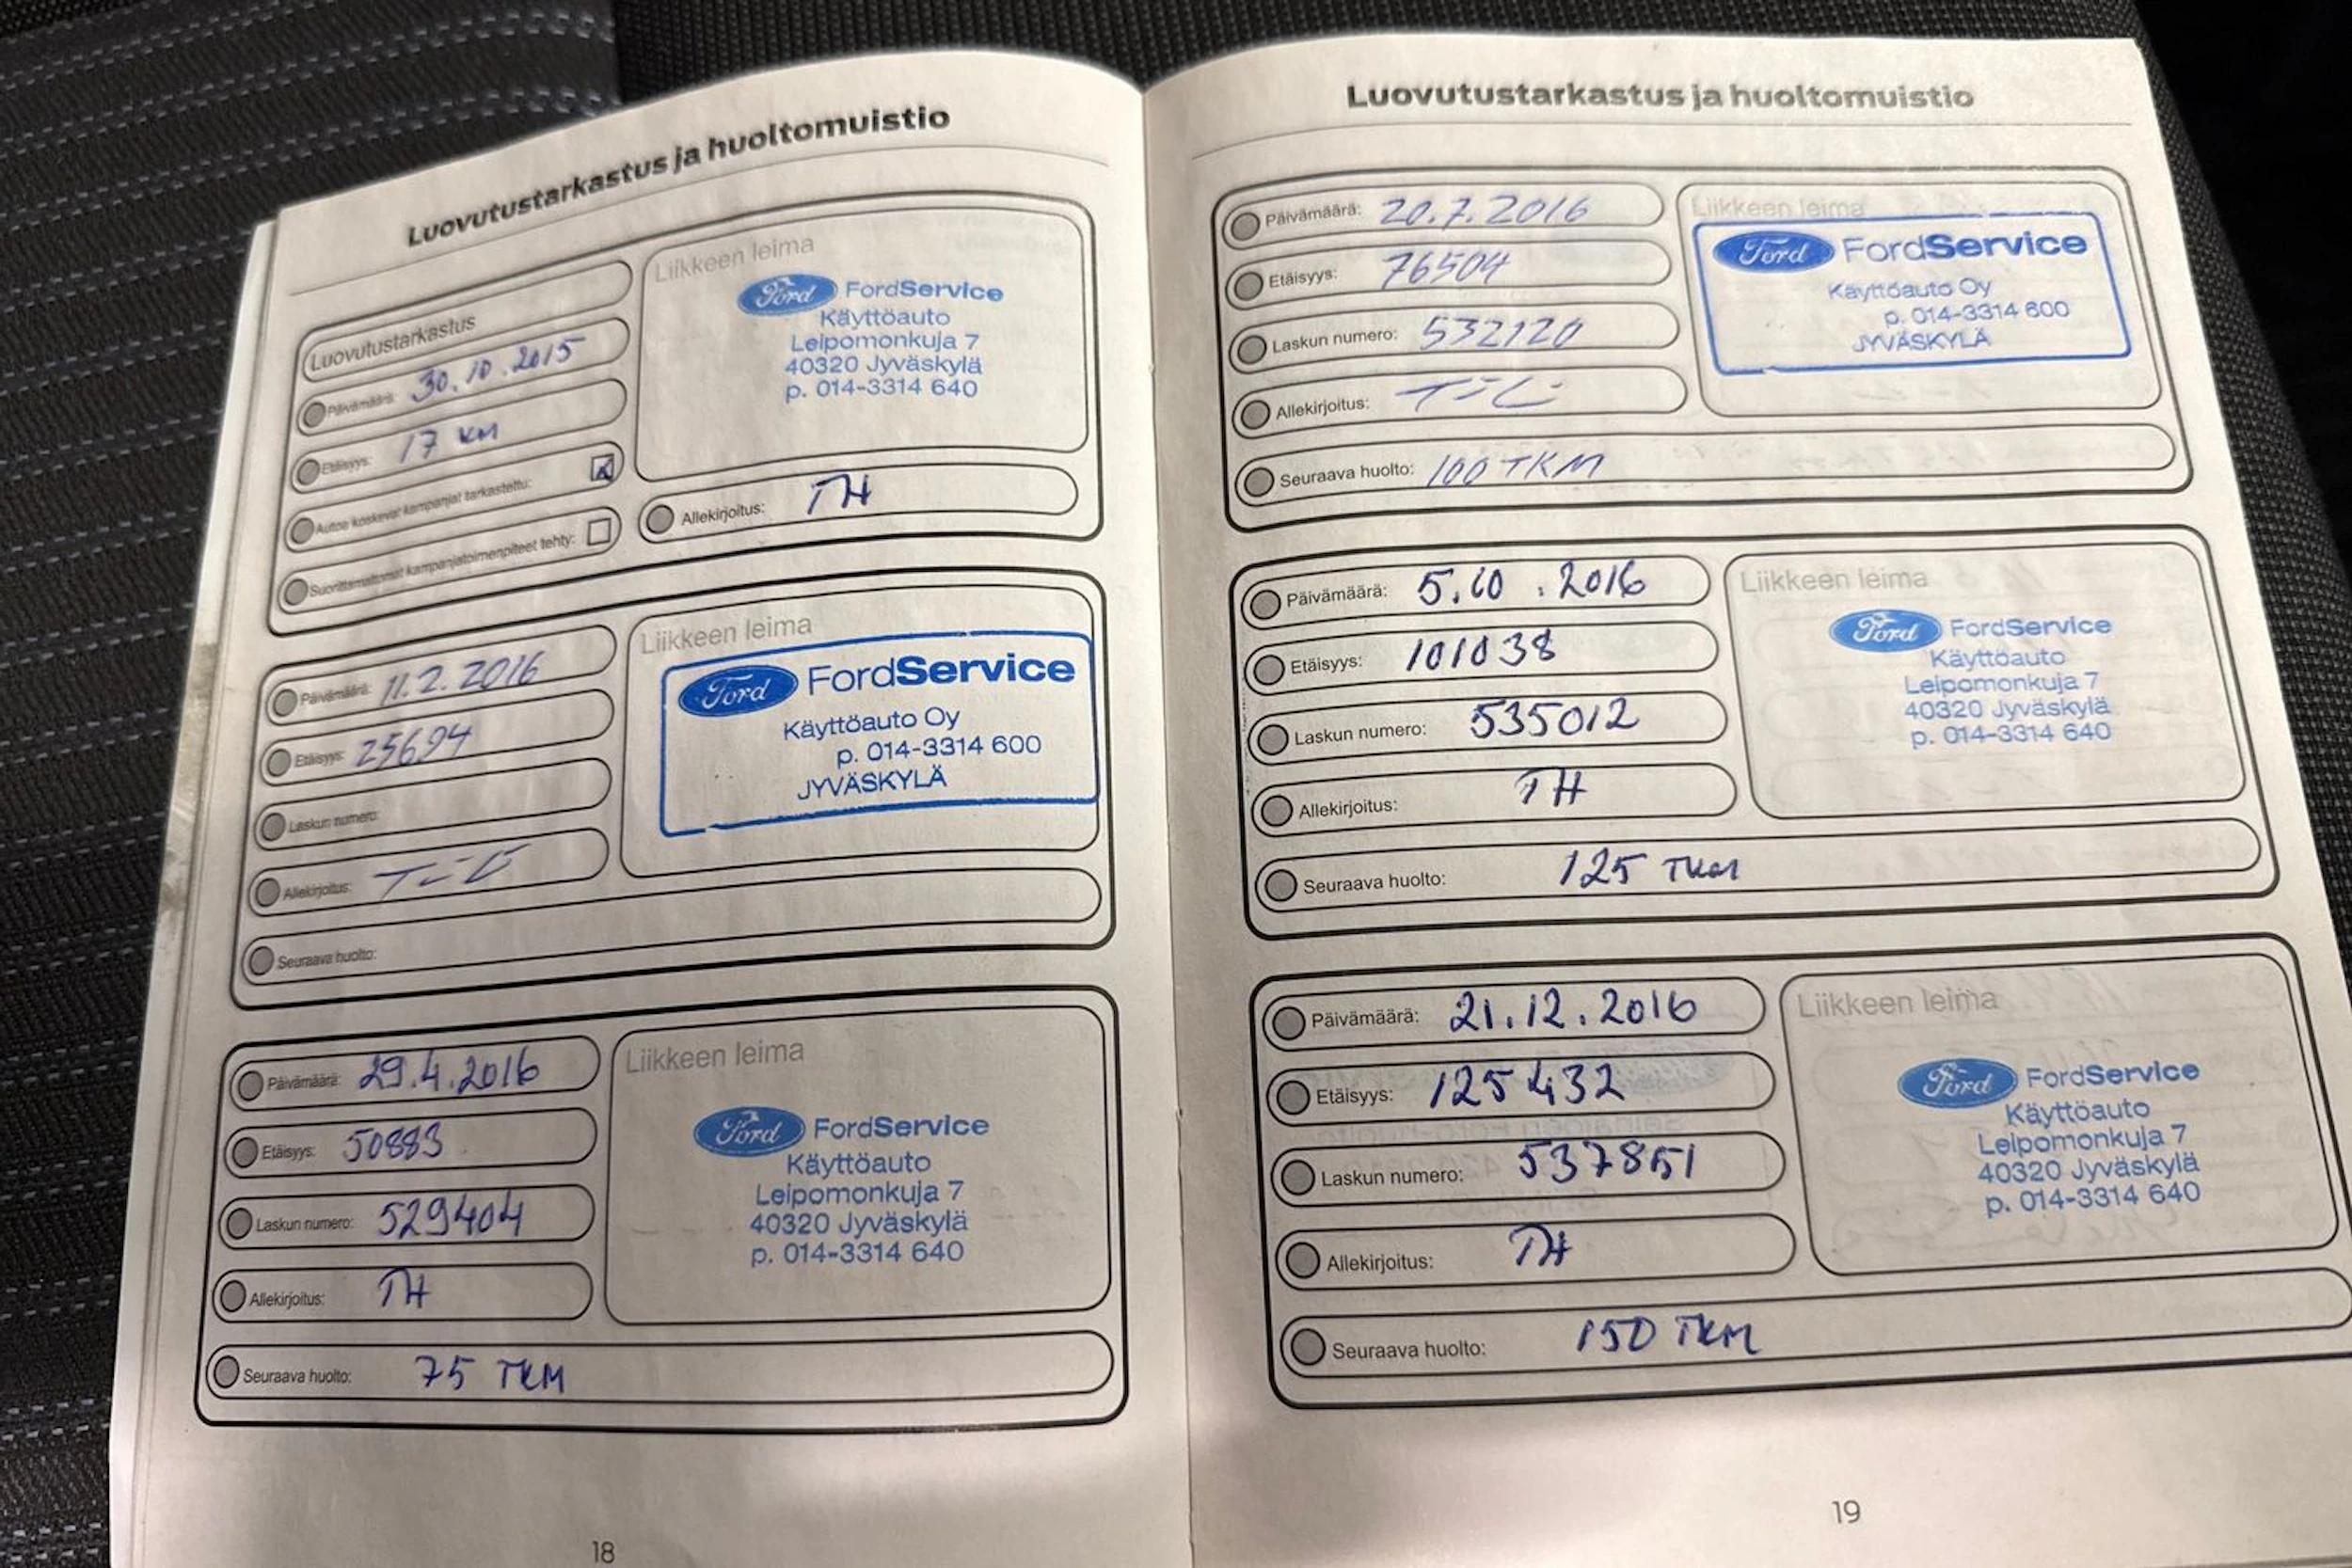 Luovutustarkastus ja huoltomuistio
Luovutustarkastus
Päivämäärä: 30.10.2015
Etäisyys: 17 KM
Autoa koskevat kampanjat tarkastettu:
Suorittamattomat kampanjatoimenpiteet tehty:
Liikkeen leima
Ford FordService
Käyttöauto
Leipomonkuja 7
40320 Jyväskylä
p. 014-3314 640
Allekirjoitus: TH
Päivämäärä: 11.2.2016
Etäisyys: 25694
Laskun numero:
Allekirjoitus:
Seuraava huolto:
Liikkeen leima
Ford FordService
Käyttöauto Oy
p. 014-3314 600
JYVÄSKYLÄ
Päivämäärä: 29.4.2016
Etäisyys: 50883
Laskun numero: 529404
Allekirjoitus: TH
Seuraava huolto: 75 TKM
Liikkeen leima
Ford FordService
Käyttöauto
Leipomonkuja 7
40320 Jyväskylä
p. 014-3314 640
18
Luovutustarkastus ja huoltomuistio
Päivämäärä: 20.7.2016
Etäisyys: 76504
Laskun numero: 532120
Allekirjoitus:
Seuraava huolto: 100 TKM
Liikkeen leima
Ford FordService
Käyttöauto Oy
p. 014-3314 600
JYVÄSKYLÄ
Päivämäärä: 5.10.2016
Etäisyys: 101038
Laskun numero: 535012
Allekirjoitus: TH
Seuraava huolto: 125 TKM
Liikkeen leima
Ford FordService
Käyttöauto
Leipomonkuja 7
40320 Jyväskylä
p. 014-3314 640
Päivämäärä: 21.12.2016
Etäisyys: 125432
Laskun numero: 537851
Allekirjoitus: TH
Seuraava huolto: 150 TKM
Liikkeen leima
Ford FordService
Käyttöauto
Leipomonkuja 7
40320 Jyväskylä
p. 014-3314 640
19